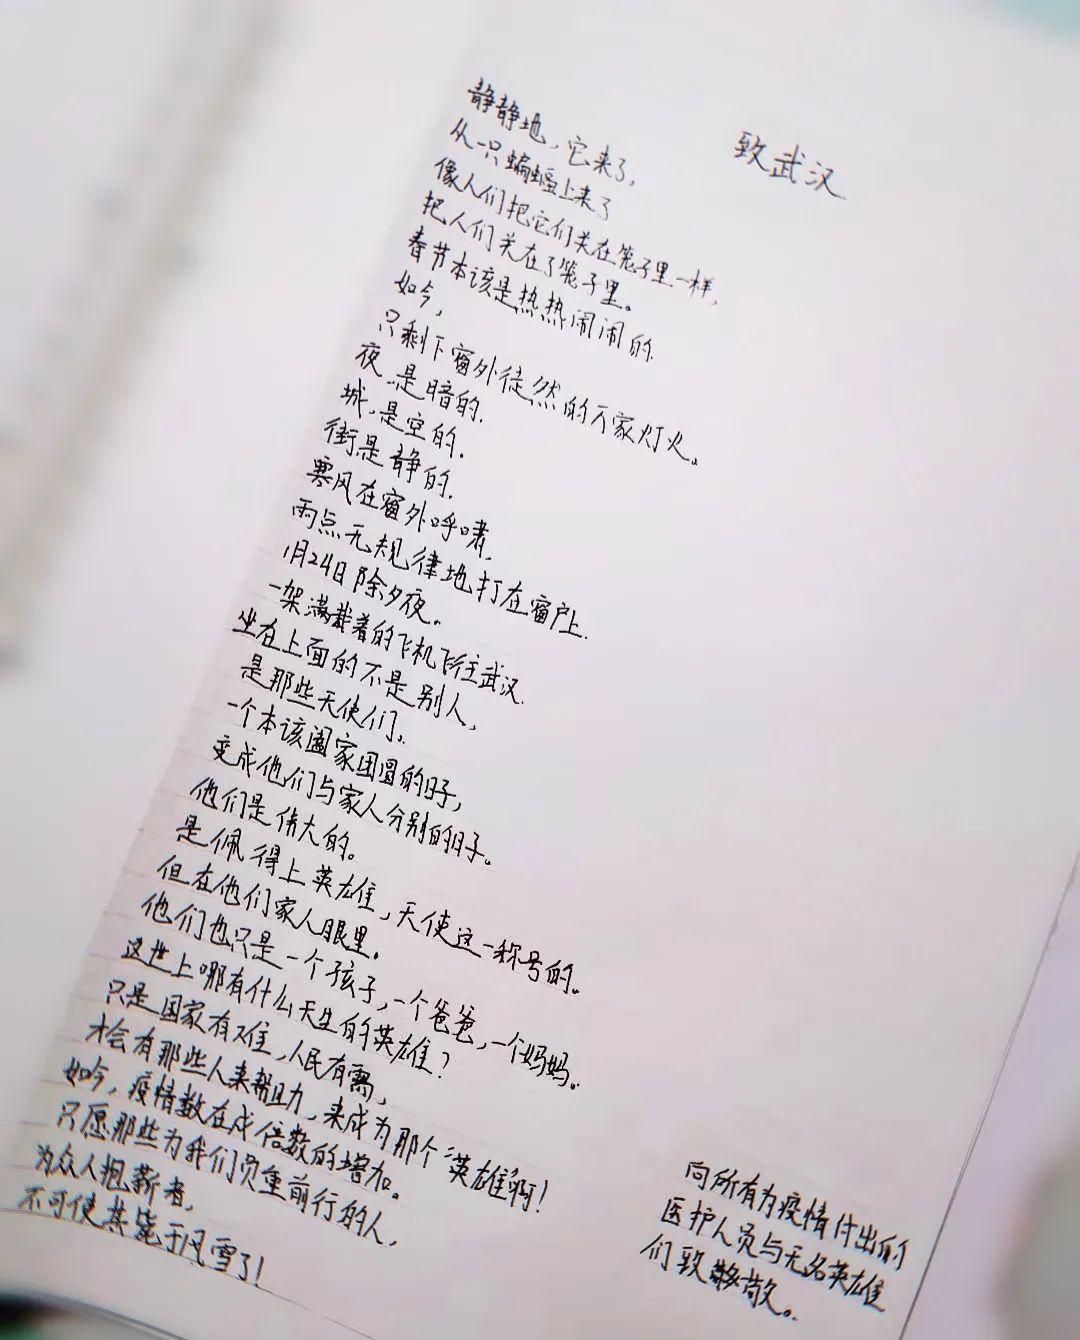 致武汉
静静地，它来了，
从一只蝙蝠上来了
像人们把它们关在笼子里一样，
把人们关在了笼子里。
春节本该是热热闹闹的.
如今，
只剩下窗外徒然的万家灯火。
夜，是暗的.
城，是空的.
街是静的.
寒风在窗外呼啸，
雨点无规律地打在窗户上.
1月24日除夕夜。
一架满载着的飞机飞往武汉.
坐在上面的不是别人，
是那些天使们。
一个本该阖家团圆的日子，
变成他们与家人分别的日子。
他们是伟大的。
是佩得上英雄，天使这一称号的。
但在他们家人眼里。
他们也只是一个孩子，一个爸爸，一个妈妈。
这世上哪有什么天生的英雄？
只是国家有难，人民有离，
才会有那些人来帮助，来成为那个“英雄”啊！
如今，疫情数在成倍数的增加。
只愿那些为我们负重前行的人，
为众人抱薪者，
不可使其毙于风雪了！
向所有为疫情付出的
医护人员与无名英雄
们致敬。